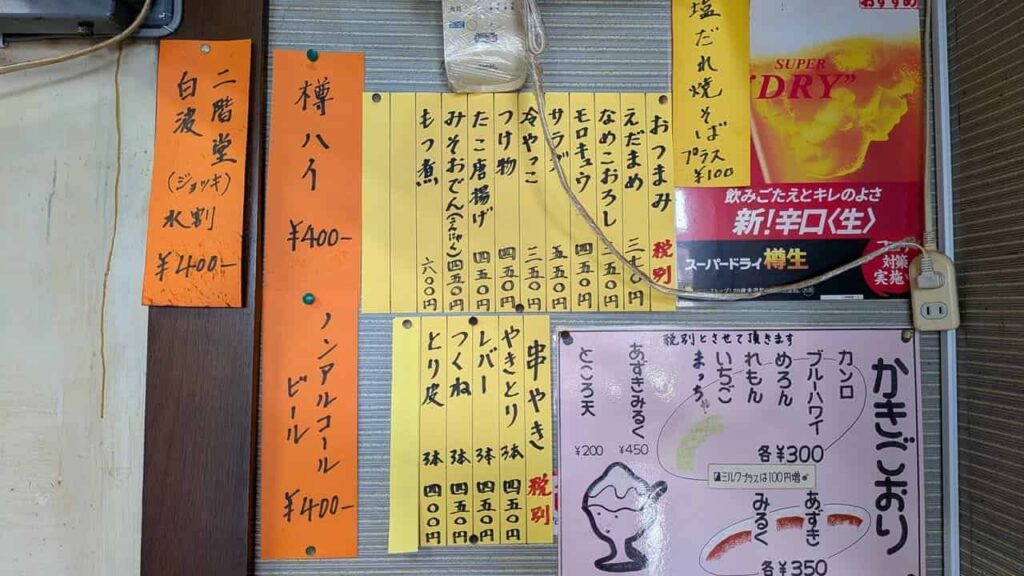 おすすめ
SUPER
"DRY"
飲みごたえとキレのよさ
新!辛口〈生〉
スーパードライ樽生
対策
実施
塩だれ焼そば
プラス
¥100
おつまみ 税別
えだまめ
なめこおろし 五五〇円
モロキュウ 四五〇円
サラダ 五五〇円
冷やっこ 三五〇円
つけ物 四五〇円
たこ唐揚げ 四五〇円
みそおでん(こんにゃく) 四五〇円
もつ煮 六〇〇円
樽ハイ
¥400-
二階堂
白波
(ジョッキ)
水割
¥400-
ノンアルコール
ビール
¥400-
串やき 税別
やきとり 3本 四五〇円
レバー 3本 四五〇円
つくね 3本 四五〇円
とり皮 3本 四〇〇円
税別とさせて頂きます
かきごおり
カンロ
ブルーハワイ
めろん
れもん
いちご
まっちゃ
各¥300
ミルクプラスは100円増
あずき
みるく
各¥350
あずきみるく ¥450
ところ天 ¥200